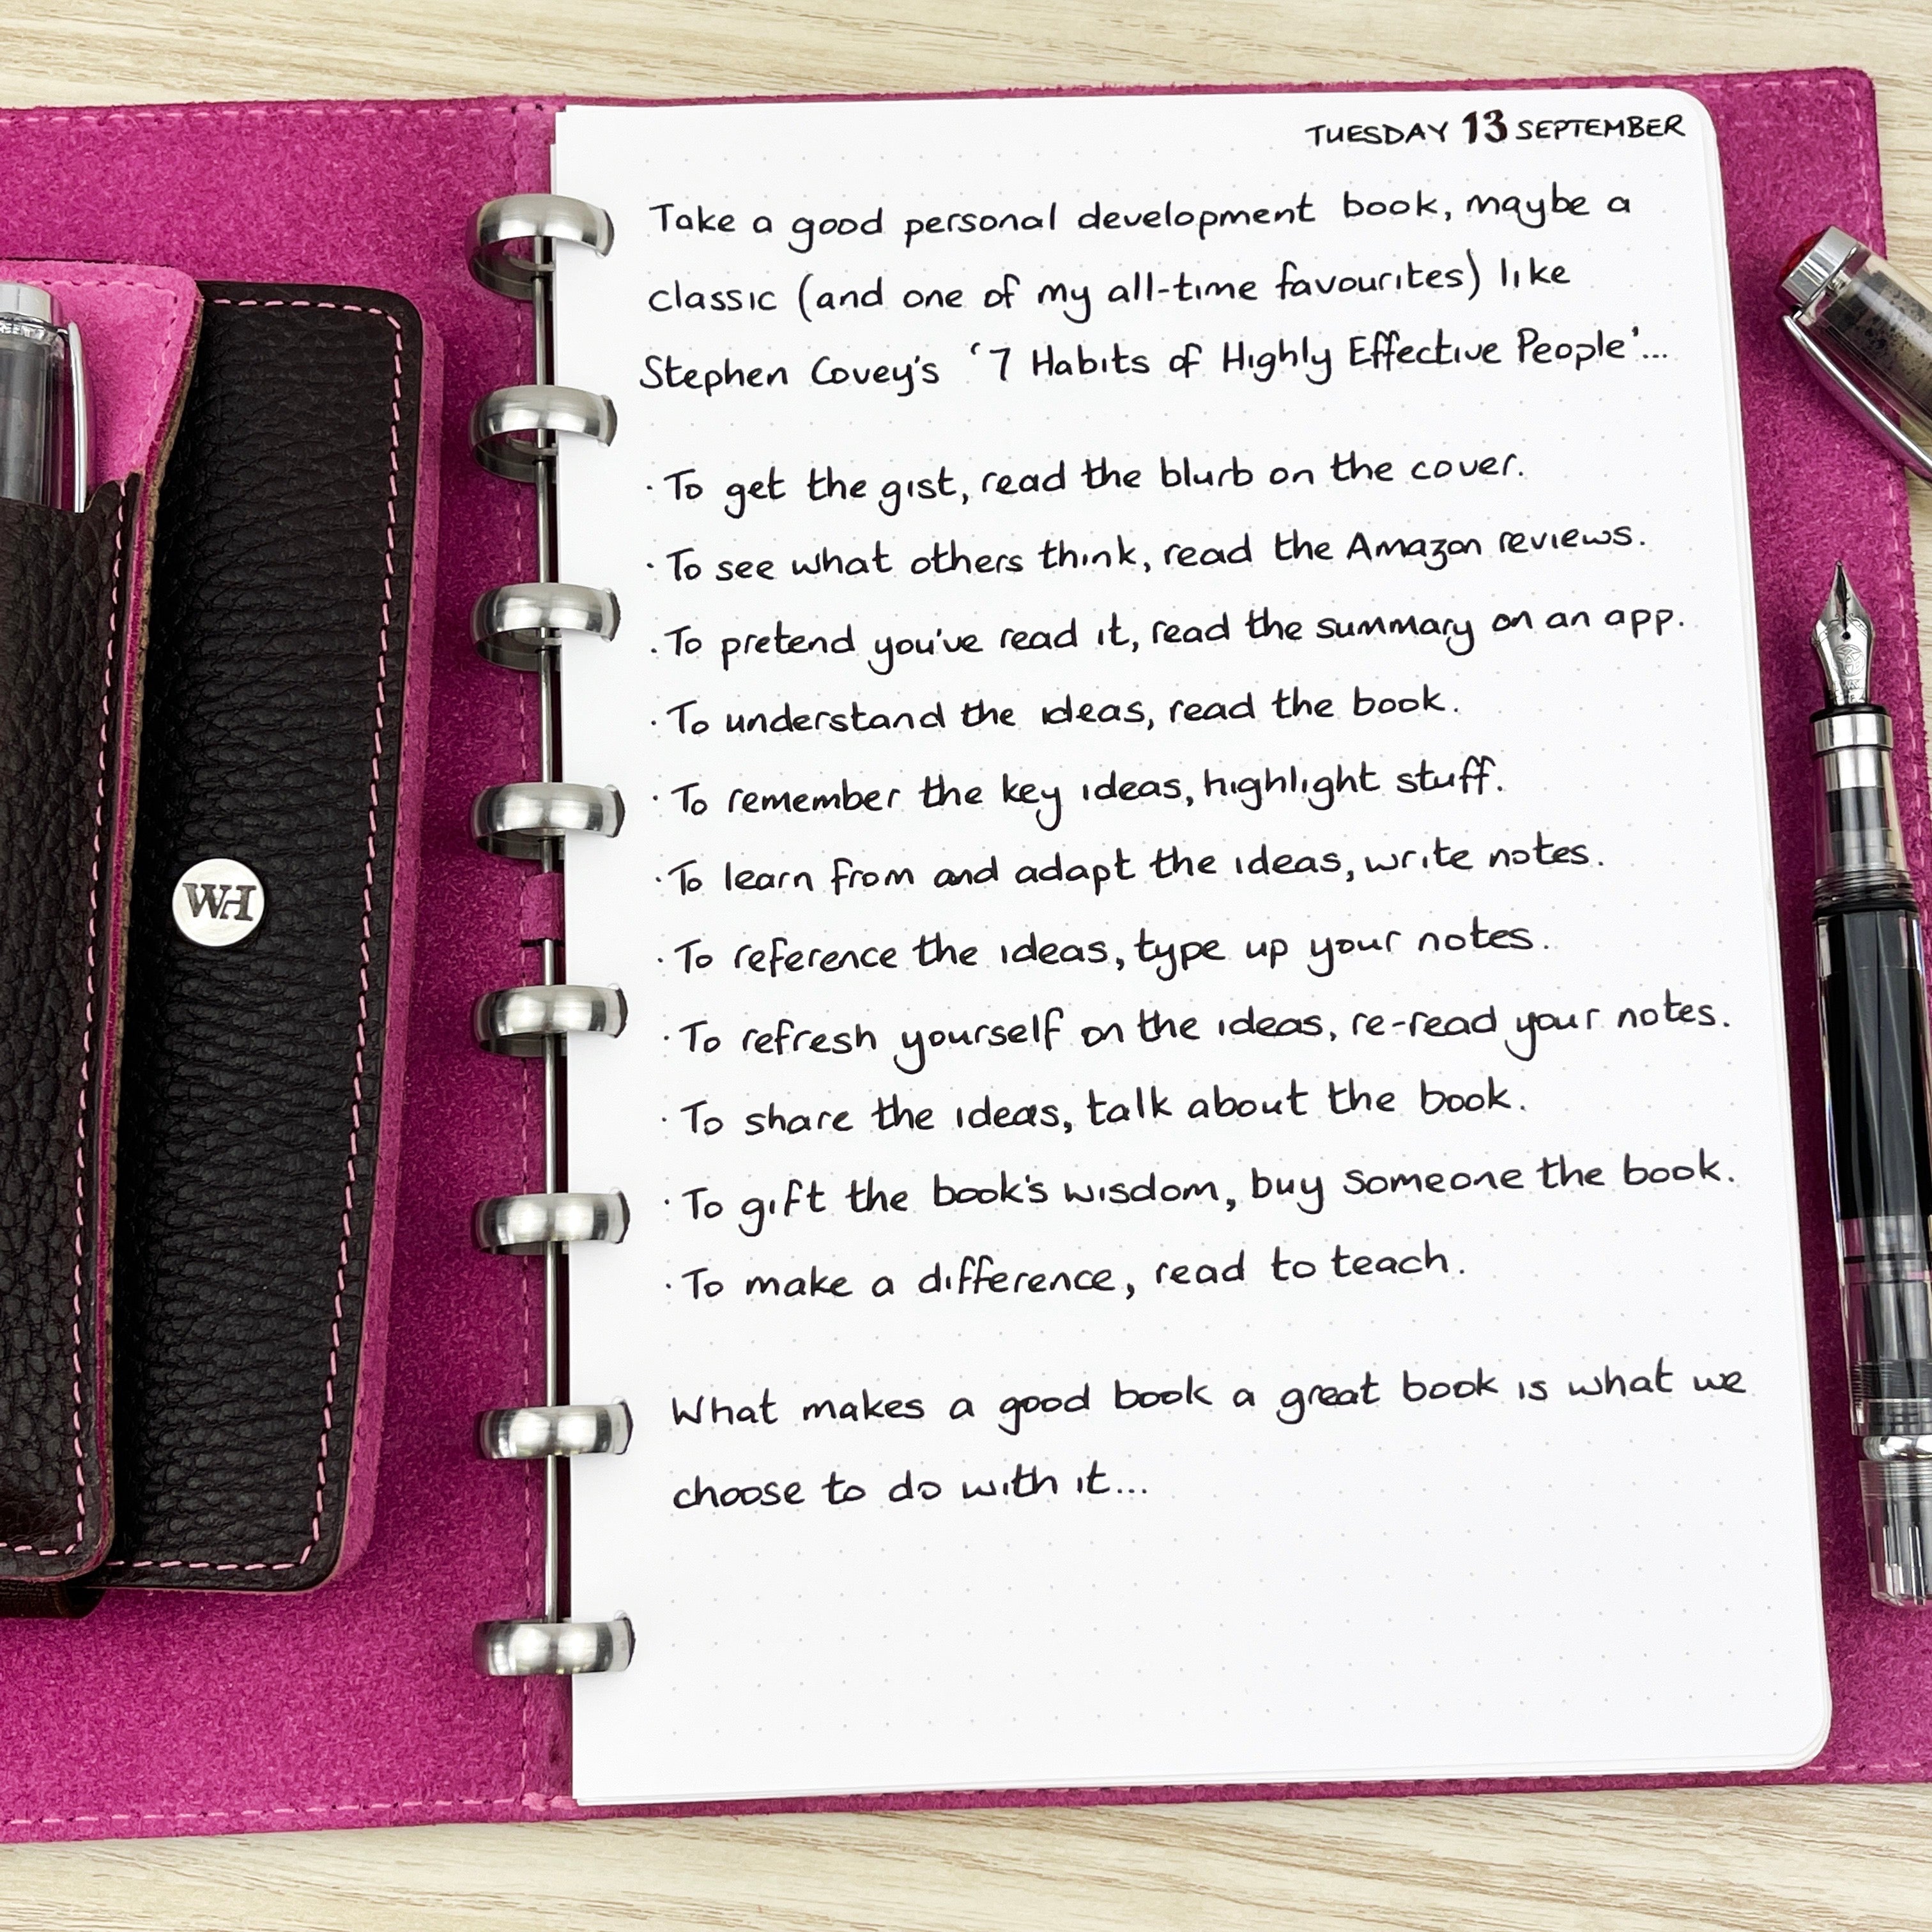 TUESDAY 13 SEPTEMBER
Take a good personal development book, maybe a
classic (and one of my all-time favourites) like
Stephen Covey's '7 Habits of Highly Effective People'...
· To get the gist, read the blurb on the cover.
· To see what others think, read the Amazon reviews.
· To pretend you've read it, read the summary on an app.
· To understand the ideas, read the book.
· To remember the key ideas, highlight stuff.
· To learn from and adapt the ideas, write notes.
· To reference the ideas, type up your notes.
· To refresh yourself on the ideas, re-read your notes.
· To share the ideas, talk about the book.
· To gift the book's wisdom, buy someone the book.
· To make a difference, read to teach.
What makes a good book a great book is what we
choose to do with it...
WH